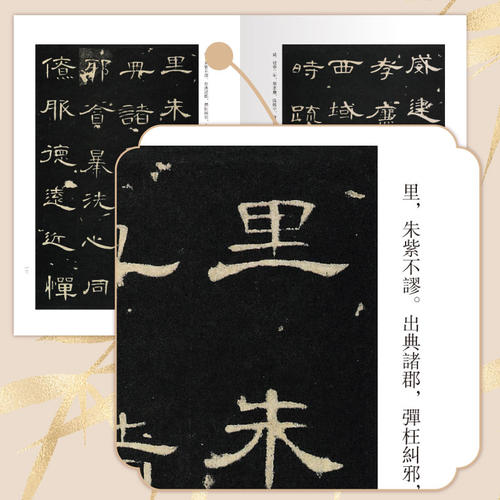 里朱
典諸
邪貪暴洗心同
僚服德遠近憚
威建
孝廉
西域
時疏
里朱
里，朱紫不謬。出典諸郡，彈枉糾邪，